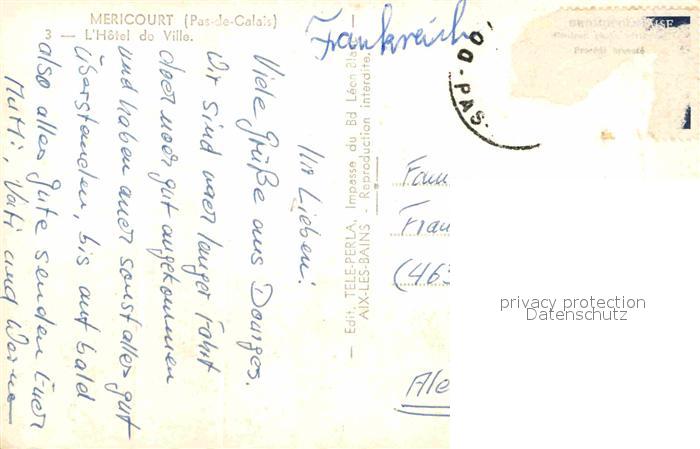 MERICOURT (Pas-de-Calais)
3 — L'Hôtel de Ville.
Ihr Lieben!
Viele Grüße aus Dourges.
Wir sind nach langer Fahrt
aber noch gut angekommen
und haben auch sonst alles gut
überstanden, bis auf bald
also alles gute senden Euch
Mutti, Vati und
— Edit. TELE-PERLA, Impasse du Bd Léon-Bla
AIX-LES-BAINS - Reproduction interdite.
Frankreich
DO-PAS-
Procédé breveté
Fam
Frau
(463
Ale
privacy protection
Datenschutz